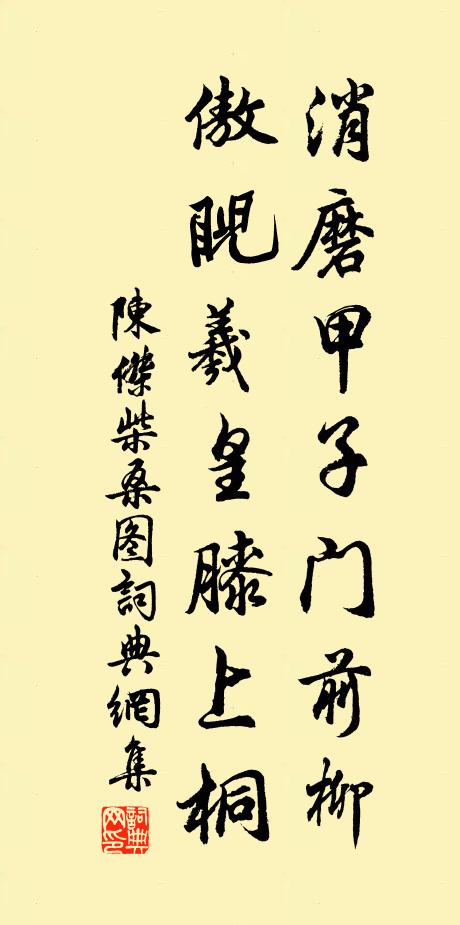 消磨甲子门前柳
傲睨羲皇膝上桐
陳傑柴桑图詞典網集
詞典网印